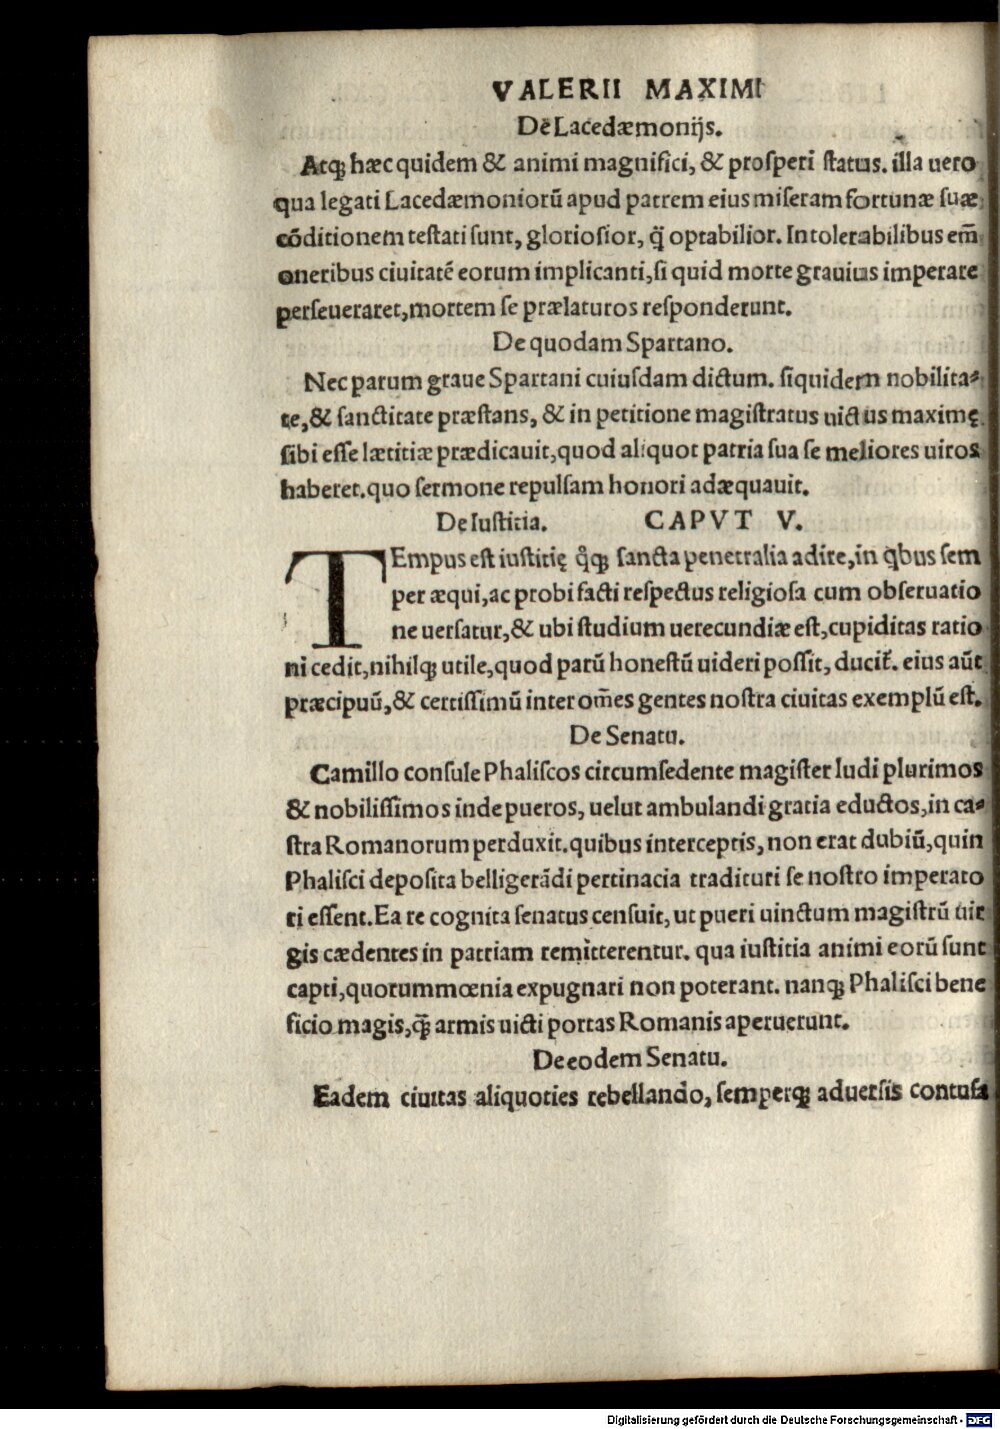 VALERII MAXIMI
De Lacedæmonijs.
Atq; hæc quidem & animi magnifici, & prosperi status. illa uero
qua legati Lacedæmoniorũ apud patrem eius miseram fortunæ suæ
cõditionem testati sunt, gloriosior, q̃ optabilior. Intolerabilibus em̃
oneribus ciuitatẽ eorum implicanti, si quid morte grauius imperare
perseueraret, mortem se prælaturos responderunt.
De quodam Spartano.
Nec parum graue Spartani cuiusdam dictum. siquidem nobilita-
te, & sanctitate præstans, & in petitione magistratus uictus maximę
sibi esse lætitiæ prædicauit, quod aliquot patria sua se meliores uiros
haberet. quo sermone repulsam honori adæquauit.
De Iustitia. CAPVT V.
TEmpus est iustitię q̊q; sancta penetralia adire, in q̊bus sem
per æqui, ac probi facti respectus religiosa cum obseruatio
ne uersatur, & ubi studium uerecundiæ est, cupiditas ratio
ni cedit, nihilq; utile, quod parũ honestũ uideri possit, ducit̃. eius aũt
præcipuũ, & certissimũ inter om̃es gentes nostra ciuitas exemplũ est.
De Senatu.
Camillo consule Phaliscos circumsedente magister ludi plurimos
& nobilissimos inde pueros, uelut ambulandi gratia eductos, in ca-
stra Romanorum perduxit. quibus interceptis, non erat dubiũ, quin
Phalisci deposita belligerãdi pertinacia tradituri se nostro imperato
ri essent. Ea re cognita senatus censuit, ut pueri uinctum magistrũ uir
gis cædentes in patriam remitterentur. qua iustitia animi eorũ sunt
capti, quorum mœnia expugnari non poterant. nanq; Phalisci bene
ficio magis, q̃ armis uicti portas Romanis aperuerunt.
De eodem Senatu.
Eadem ciuitas aliquoties rebellando, semperq; aduersis contusa
Digitalisierung gefördert durch die Deutsche Forschungsgemeinschaft - DFG